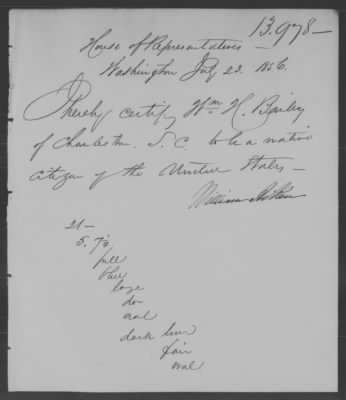 13.978—
House of Representatives—
Washington July 23. 1856.
I hereby certify Wm H. Bailey
of Charleston. S. C. to be a native
citizen of the United States—
William Aiken
21—
5. 7½
full
blue
large
do
oval
dark brn
fair
oval